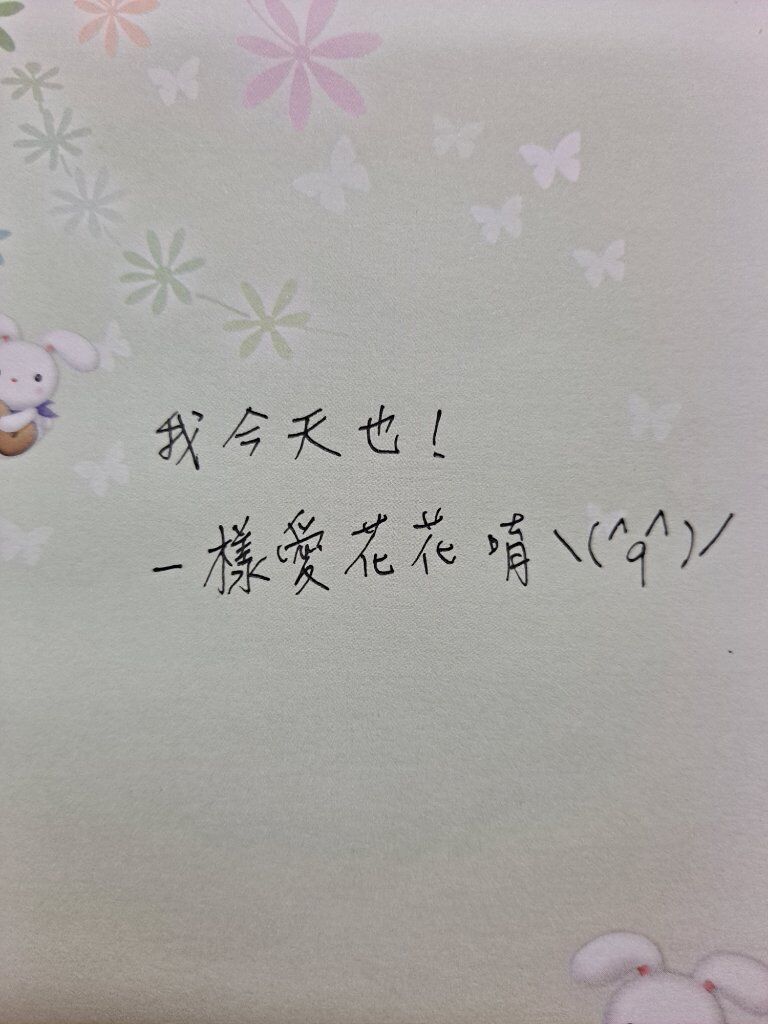 我今天也！
一樣愛花花唷\(^q^)/